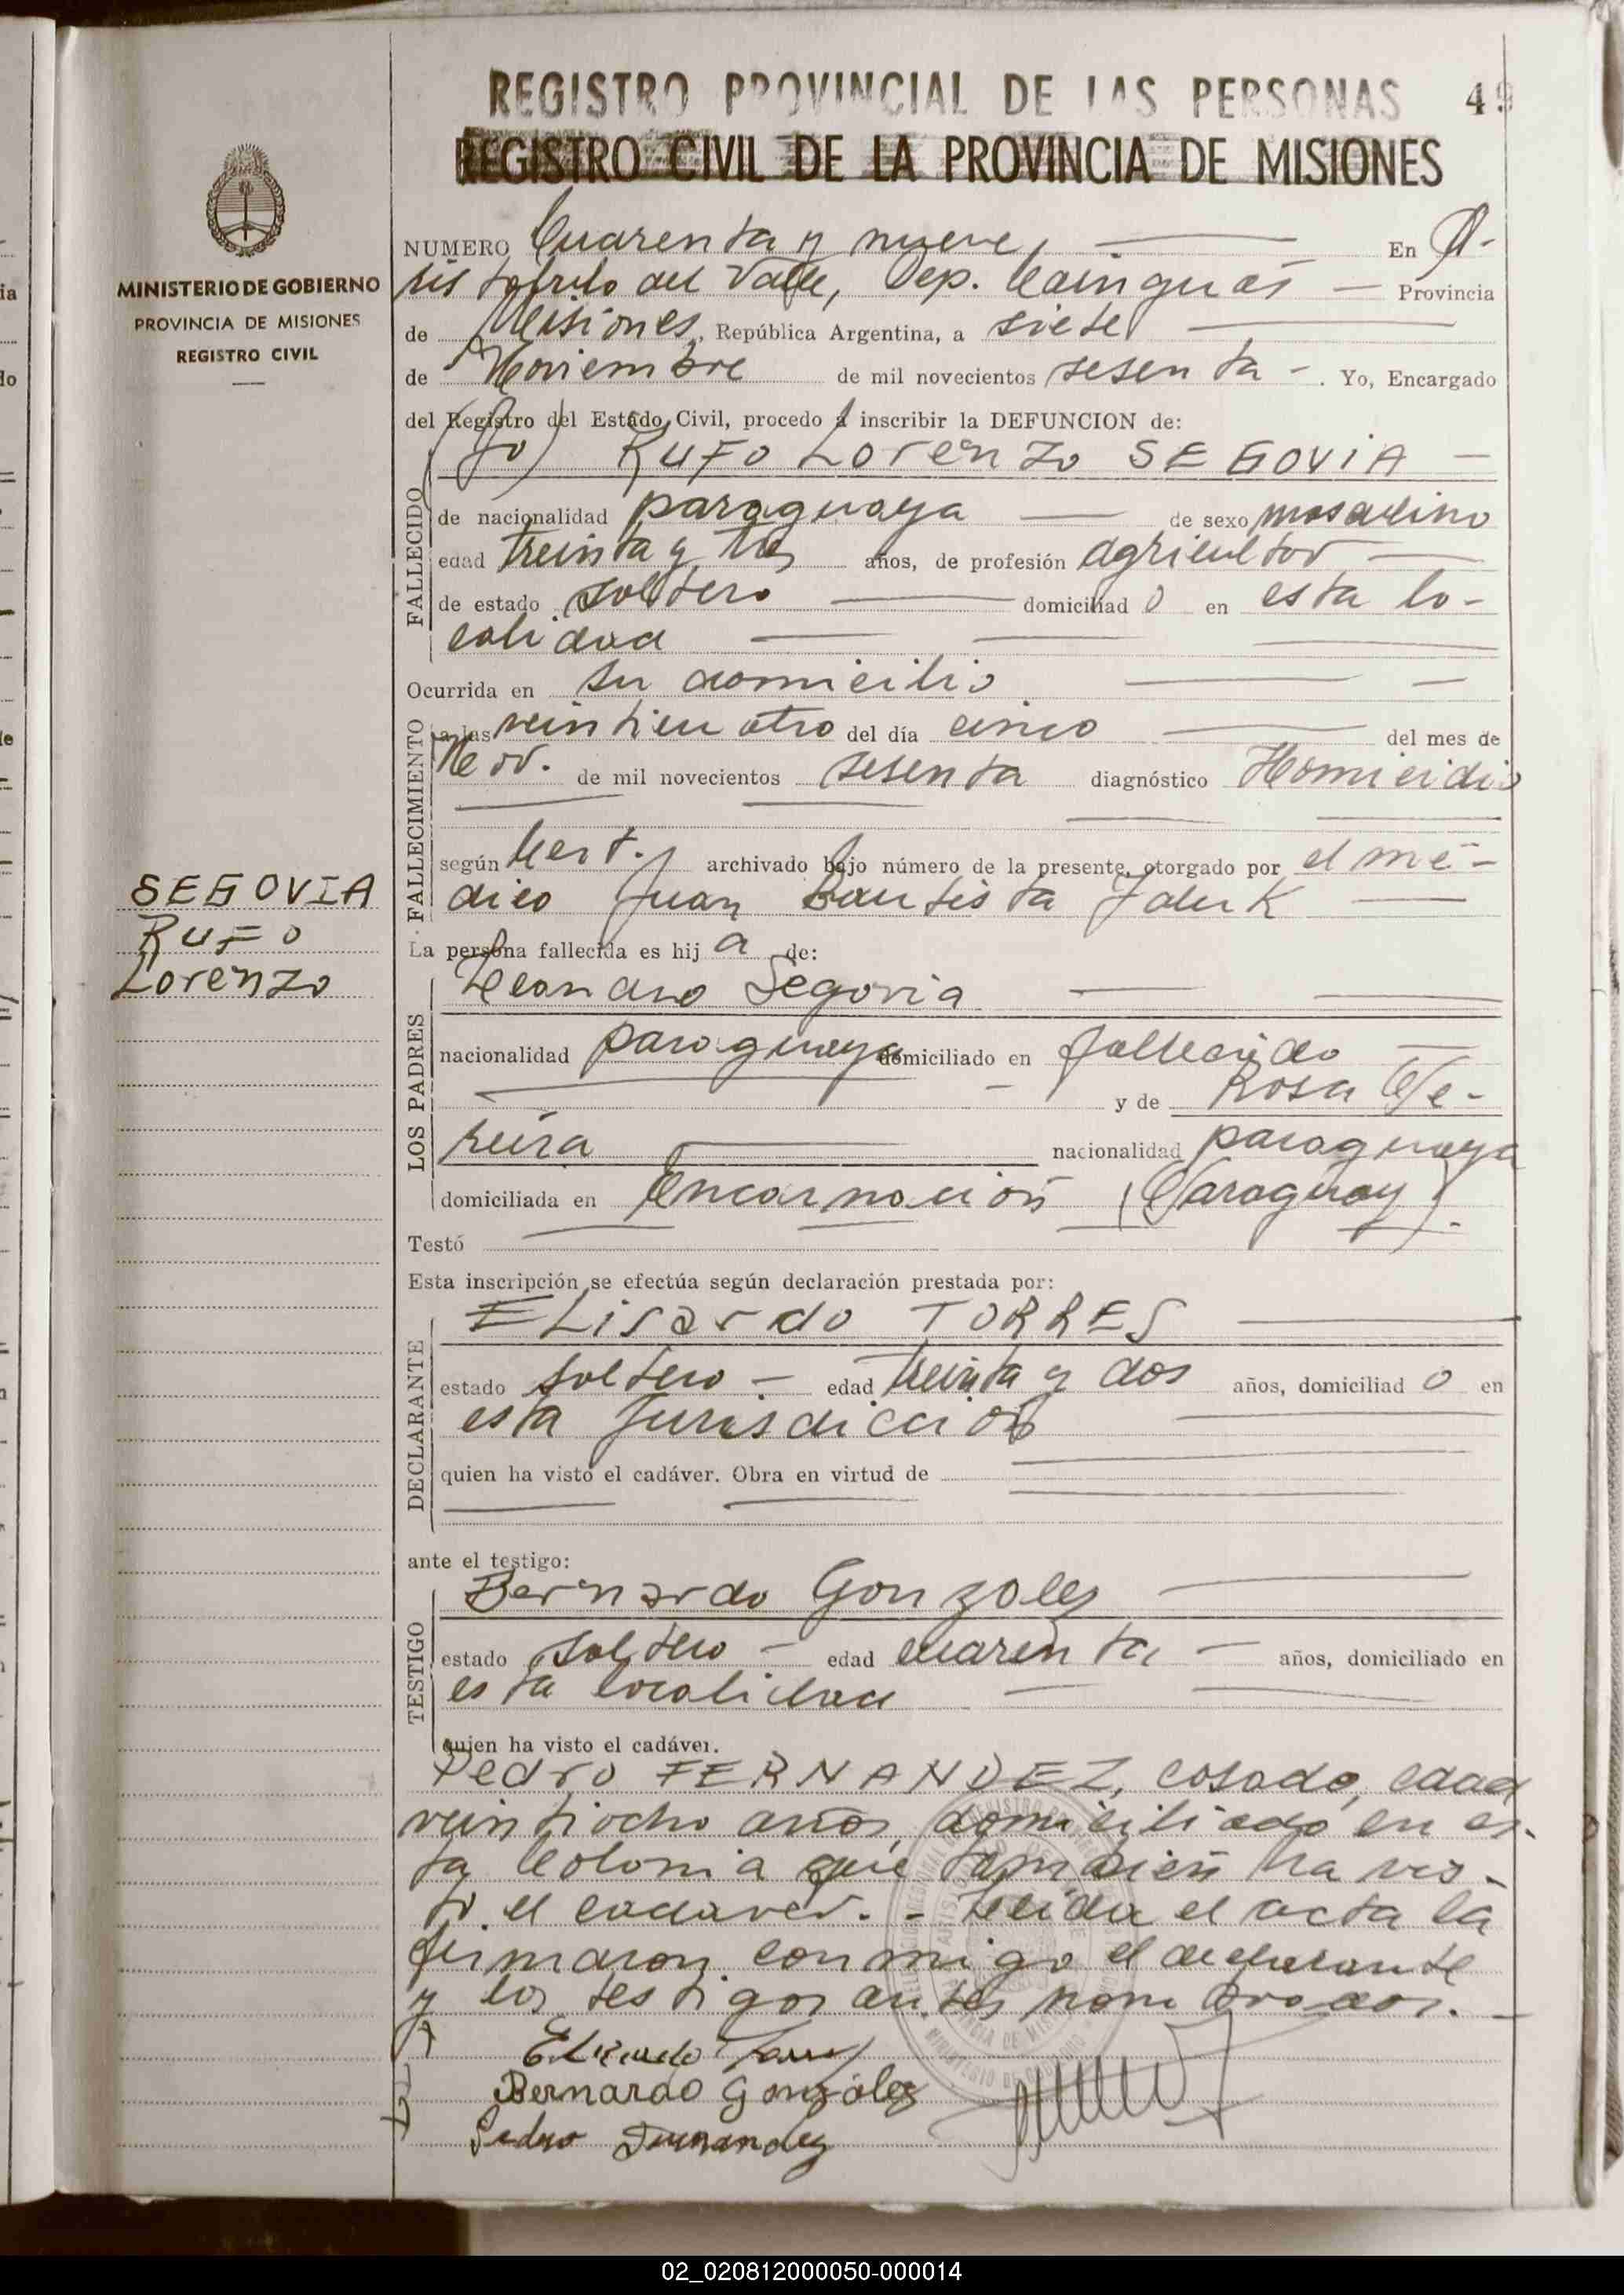 REGISTRO PROVINCIAL DE LAS PERSONAS 49
REGISTRO CIVIL DE LA PROVINCIA DE MISIONES
MINISTERIO DE GOBIERNO
PROVINCIA DE MISIONES
REGISTRO CIVIL
NUMERO Cuarenta y nueve, En A-
ristobulo del Valle, Dep. Cainguás Provincia
de Misiones, República Argentina, a siete
de Noviembre de mil novecientos sesenta . Yo, Encargado
del Registro del Estado Civil, procedo a inscribir la DEFUNCION de:
RUFO Lorenzo SEGOVIA
FALLECIDO
de nacionalidad paraguaya de sexo masculino
edad treinta y tres años, de profesión agricultor
de estado soltero domiciliad o en esta lo-
calidad
Ocurrida en su domicilio
FALLECIMIENTO
a las veinticuatro del día cinco del mes de
Nov. de mil novecientos sesenta diagnóstico Homicidio
según Cert. archivado bajo número de la presente, otorgado por el mé-
dico Juan Bautista
SEGOVIA
RUFO
Lorenzo
La persona fallecida es hij a de:
LOS PADRES
Leandro Segovia
nacionalidad paraguaya domiciliado en fallecido
y de Rosa
nacionalidad paraguaya
domiciliada en Encarnación (Paraguay).
Testó
Esta inscripción se efectúa según declaración prestada por:
DECLARANTE
ELisardo TORRES
estado soltero - edad treinta y dos años, domiciliad o en
esta Jurisdicción
quien ha visto el cadáver. Obra en virtud de
ante el testigo:
TESTIGO
Bernardo Gonzalez
estado soltero - edad cuarenta - años, domiciliado en
esta localidad
quien ha visto el cadáver.
Pedro FERNANDEZ, casado, edad
veintiocho años, domiciliado en es-
ta Colonia que también ha vis-
to el cadaver. - Leída el acta la
firmaron conmigo el declarante
y los testigos antes nombrados.
Bernardo González
Pedro Fernandez
02_020812000050-000014